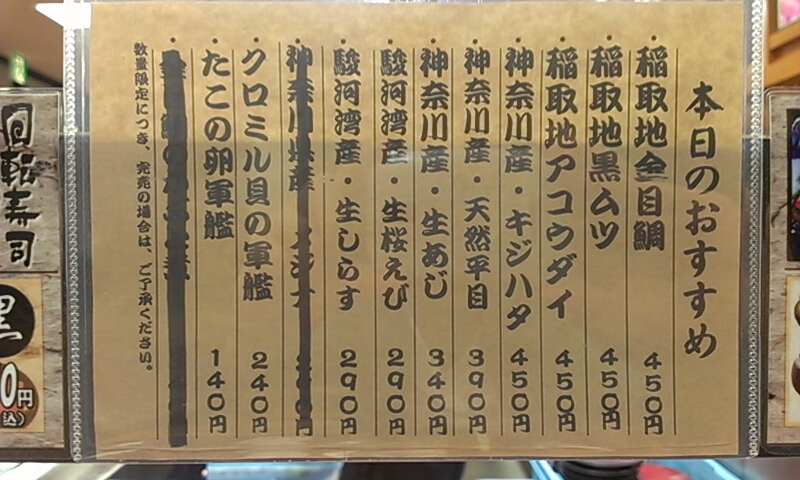 本日のおすすめ
・稲取地金目鯛 450円
・稲取地黒ムツ 450円
・稲取地アコウダイ 450円
・神奈川産・キジハタ 450円
・神奈川産・天然平目 390円
・神奈川産・生あじ 340円
・駿河湾産・生桜えび 290円
・駿河湾産・生しらす 290円
・神奈川県産・メジナ
・クロミル貝の軍艦 240円
・たこの卵軍艦 140円
数量限定につき、完売の場合は、ご了承ください。
回転寿司
黒
0円
込)